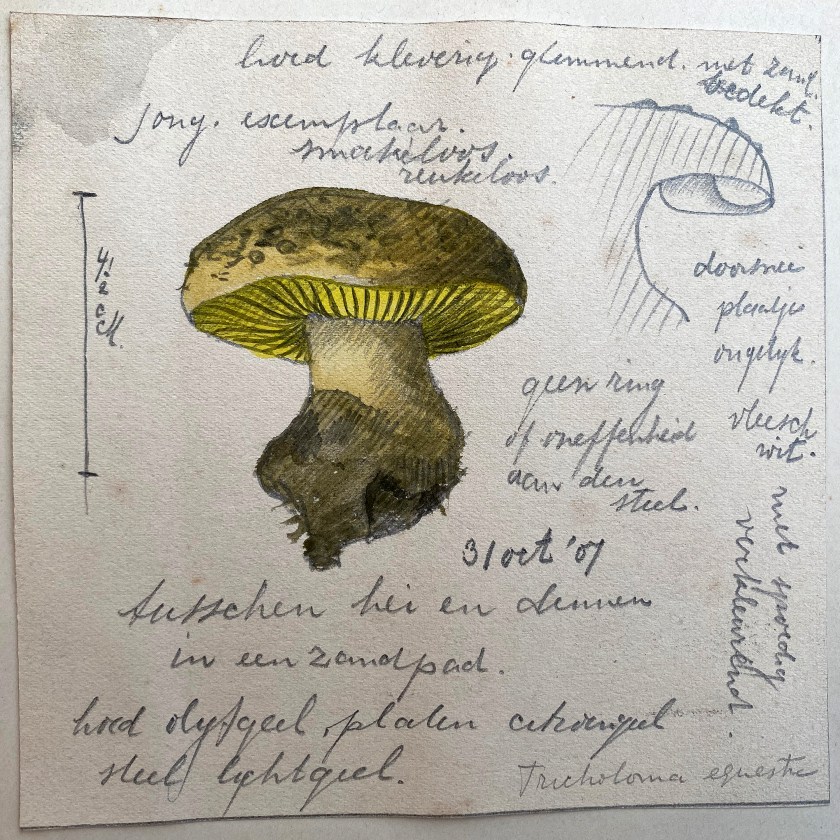 hoed kleverig. glimmend. met zand.
bedekt.
Jong. exemplaar.
smakeloos.
reukeloos.
4 1/2 cM.
doorsnee
plaatjes
ongelijk.
vleesch
wit.
niet spoedig
verkleurend.
geen ring
of oneffenheid
aan den
steel.
31 oct '07
tusschen hei en dennen
in een zandpad.
hoed olyfgeel, platen citroengeel
steel lychtgeel.
Tricholoma equestre